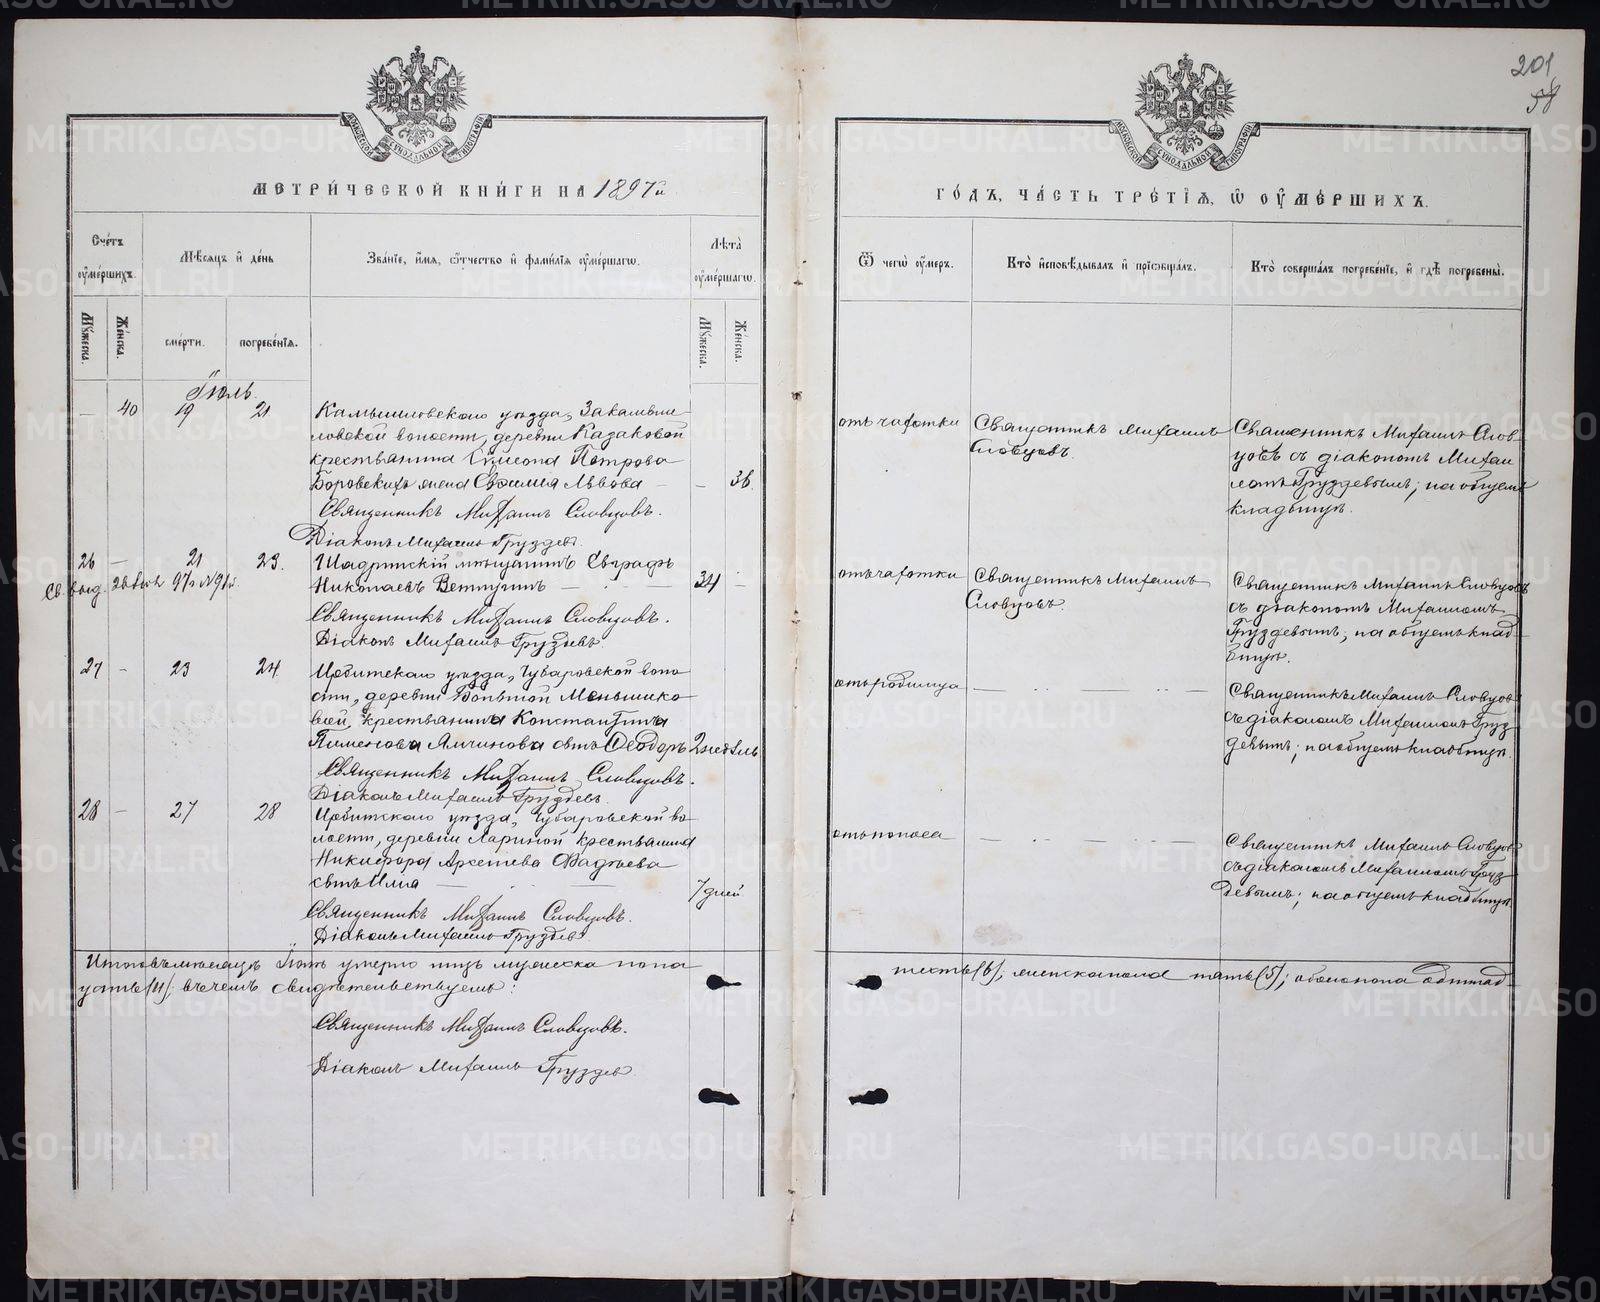 201
58
МЕТРИ́ЧЕСКОЙ КНИ́ГИ НА 1897й
ГО́ДЪ, ЧА́СТЬ ТРЕ́ТІѦ, Ѡ ОУ҆МЕ́РШИХЪ.
Сче́тъ оу҆ме́ршихъ.
Мѣ́сѧцъ и҆ де́нь
Зва́нїе, и҆́мѧ, ѻ҆́тчество и҆ фами́лїѧ оу҆ме́ршагѡ.
Лѣ́та оу҆ме́ршагѡ.
Ѿ чегѡ̀ оу҆́меръ.
Кто̀ и҆сповѣ́дывалъ и҆ прїѡбща́лъ.
Кто̀ соверша́лъ погребе́нїе, и҆ гдѣ̀ погребены̀.
Мꙋ́жеска.
Же́нска.
сме́рти.
погребе́нїѧ.
Мꙋ́жеска.
Же́нска.
Іюль.
— 40 19 21 Камышловскаго уѣзда, Закамыш-
ловской волости, деревни Казаковой
крестьянина Симеона Петрова
Боровскихъ жена Евфимія Львова — — 36.
Священникъ Михаилъ Словцовъ.
Діаконъ Михаилъ Груздевъ.
отъ чахотки
Священникъ Михаилъ
Словцовъ.
Священникъ Михаилъ Слов-
цовъ съ діакономъ Михаи
ломъ Груздевымъ; на общемъ
кладбищѣ.
26 — 21 23. Шадринскій мѣщанинъ Евграфъ
Николаевъ Ветлугинъ — 34 —
Священникъ Михаилъ Словцовъ.
Діаконъ Михаилъ Груздевъ.
отъ чахотки
Священникъ Михаилъ
Словцовъ.
Священникъ Михаилъ Словцовъ
съ діакономъ Михаиломъ
Груздевымъ; на общемъ клад-
бищѣ.
27 — 23 24. Ирбитскаго уѣзда, Чубаровской воло-
сти, деревни Большой Меньшико-
вой, крестьянина Константина
Пименова Ямчинова сынъ Ѳеодоръ 2 недѣль
Священникъ Михаилъ Словцовъ.
Діаконъ Михаилъ Груздевъ.
отъ родимца
Священникъ Михаилъ Словцовъ
съ діакономъ Михаиломъ Груз-
девымъ; на общемъ кладбищѣ.
28 — 27 28 Ирбитскаго уѣзда, Чубаровской во-
лости, деревни Лариной крестьянина
Никифора Арсеніева Фадѣева
сынъ Илія — 7 дней
Священникъ Михаилъ Словцовъ.
Діаконъ Михаилъ Груздевъ.
отъ поноса
Священникъ Михаилъ Словцовъ
съ діакономъ Михаиломъ Груз-
девымъ; на общемъ кладбищѣ.
Итого въ мѣсяцѣ Іюлѣ умерло лицъ мужеска пола
шесть (6), женска пола пять (5); обоего пола одиннад-
цать (11); въ чемъ свидѣтельствуемъ:
Священникъ Михаилъ Словцовъ.
Діаконъ Михаилъ Груздевъ